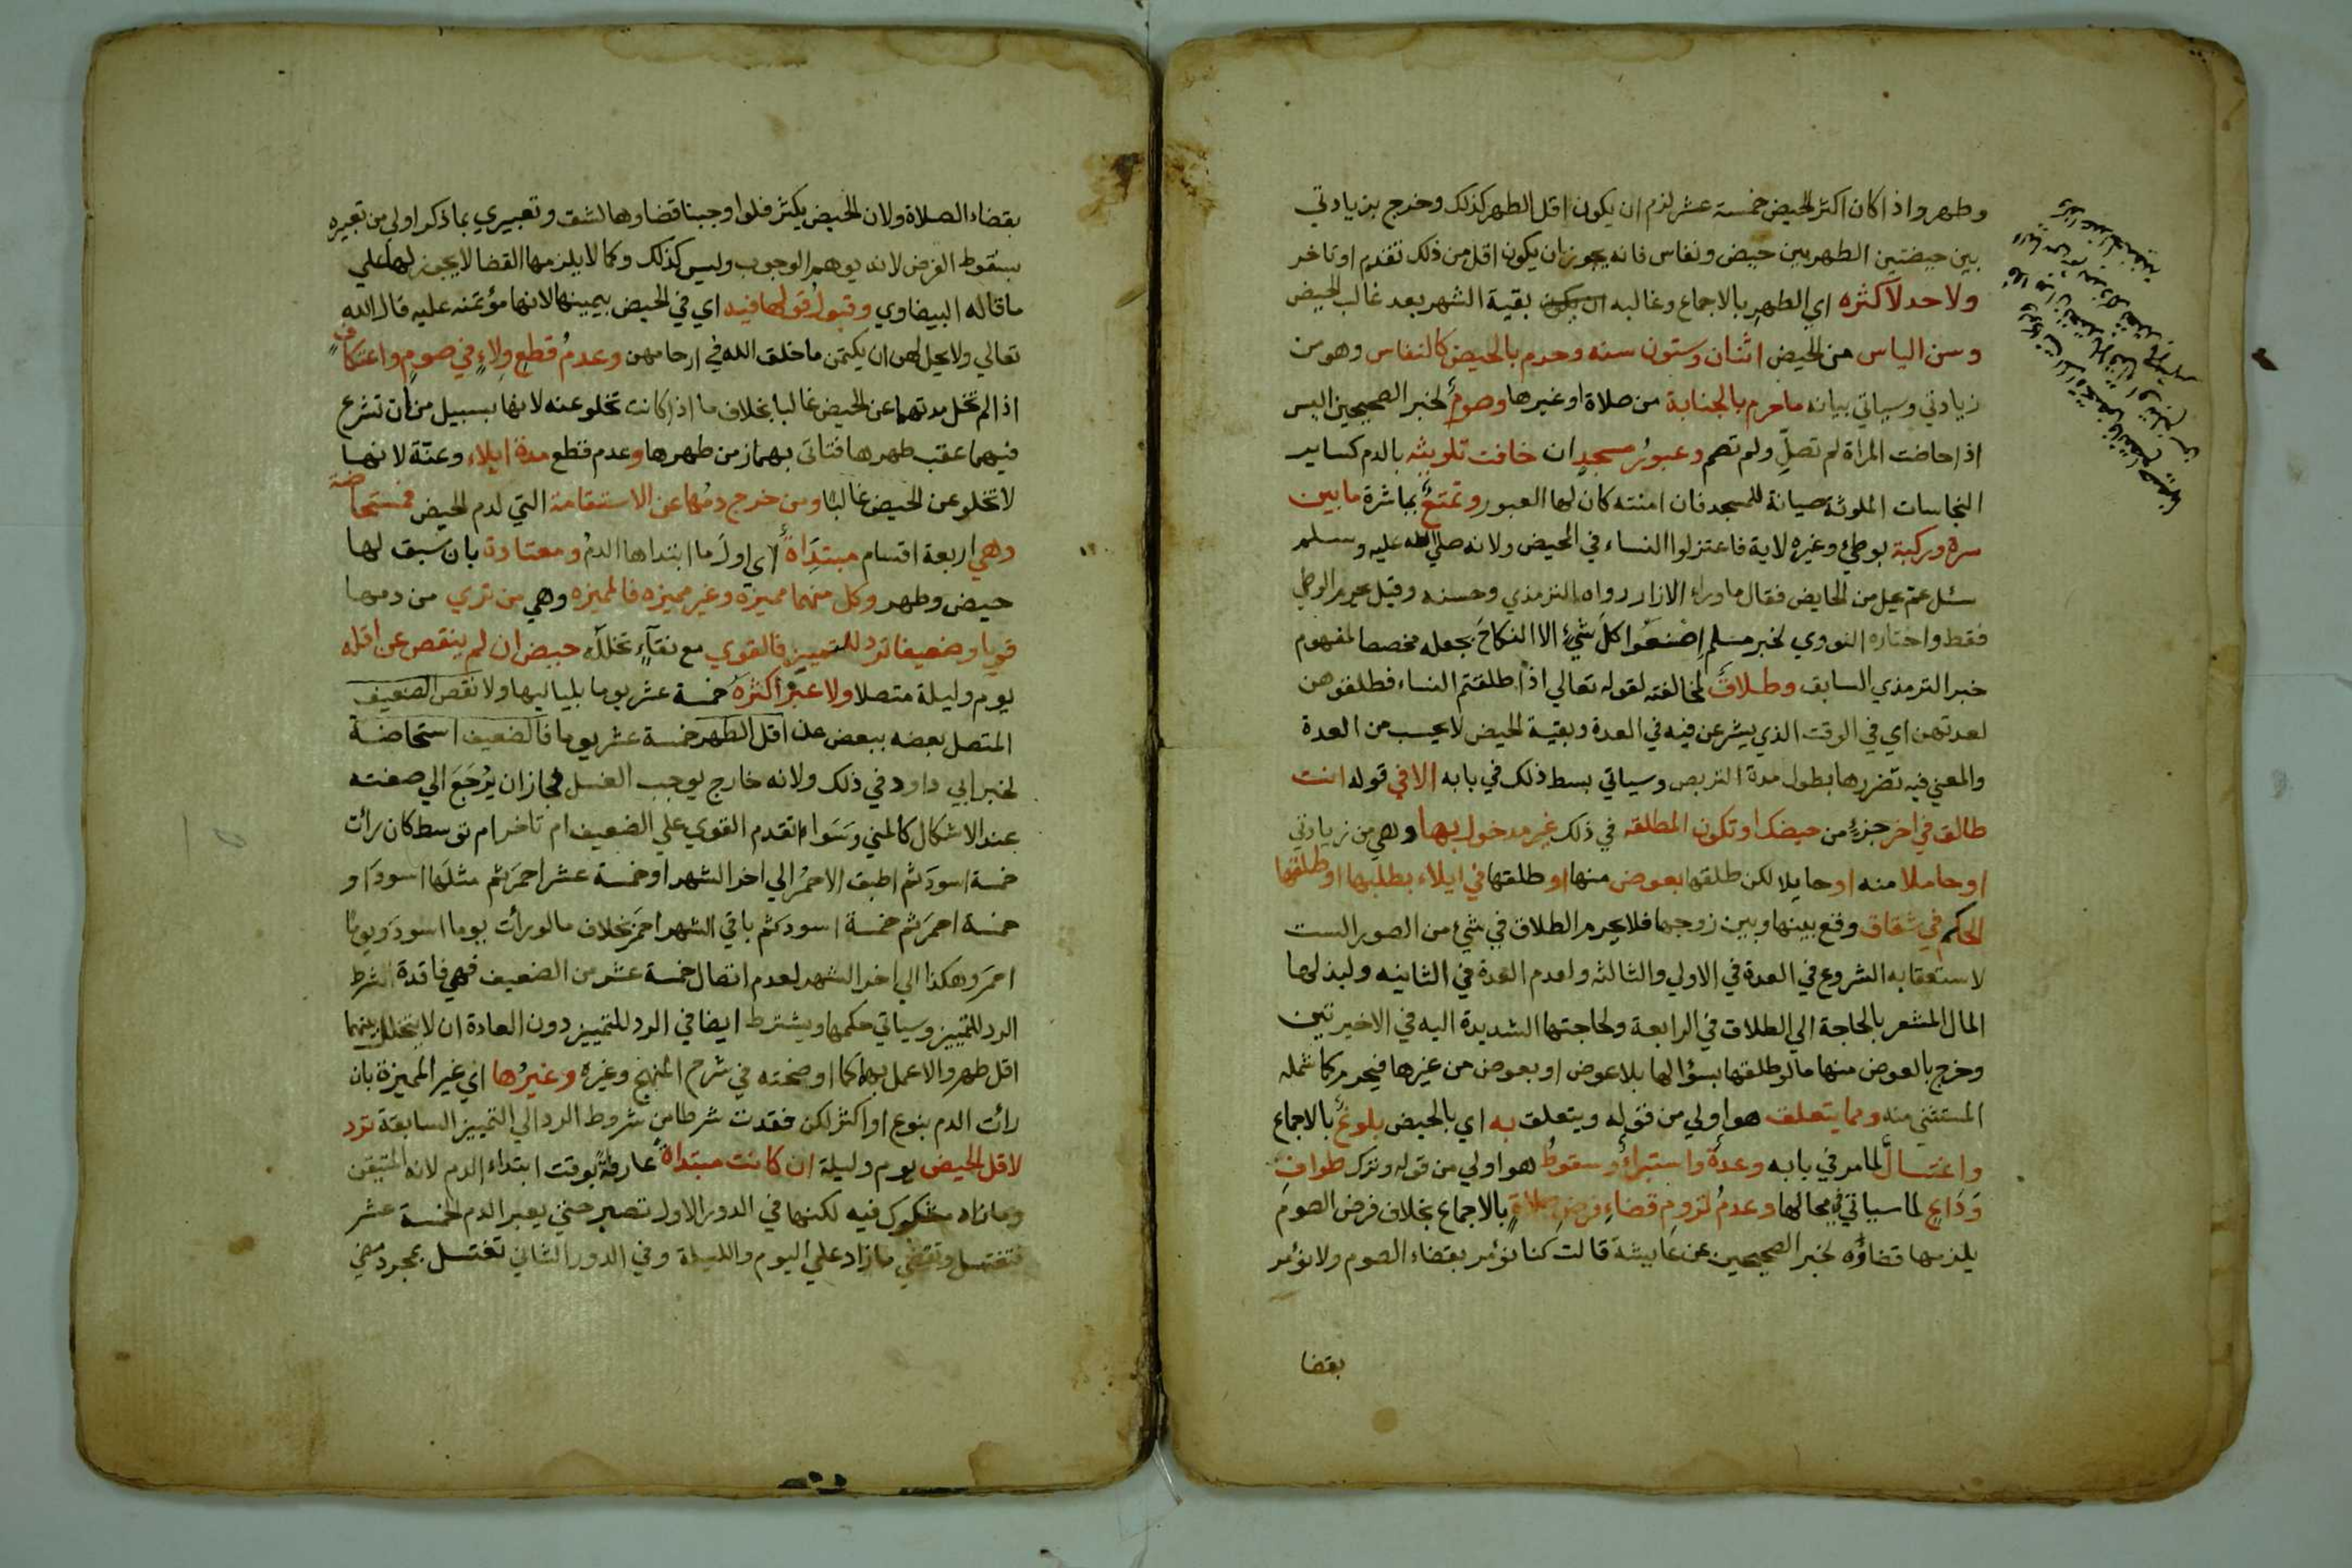 وطهر واذا كان اكثر الحيض خمسة عشر لزم ان يكون اقل الطهر كذلك وخرج بزيادتي
بين حيضتين الطهر بين حيض ونفاس فانه يجوز ان يكون اقل من ذلك تقدم او تاخر
ولا حد لاكثره اي الطهر بالاجماع وغالبه بقية الشهر بعد غالب الحيض
وسن الياس من الحيض اثنان وستون سنه وحرم بالحيض كالنفاس وهو من
زيادتي وسياتي بيانه ما حرم بالجنابة من صلاة او غيرها وصومٌ لخبر الصحيحين اليس
اذا حاضت المراة لم تصلِّ ولم تصم وعبورُ مسجدٍ ان خافت تلويثه بالدم كساير
النجاسات الملوثة صيانة للمسجد فان امنته كان لها العبور وتمتعٌ بمباشرة ما بين
سرة وركبة بوطئ وغيره لاية فاعتزلوا النساء في المحيض ولانه صلى الله عليه وسلم
سئل عم يحل من الحايض فقال ما وراء الازار رواه الترمذي وحسنه وقيل يحرم الوطئ
فقط واختاره النووي لخبر مسلم اِصْنعُوا كلَ شئٍ الا النكاحَ بجعله مخصصا لمفهوم
خبر الترمذي السابق وطلاقٌ لمخالفته لقوله تعالي اذا طلقتم النساء فطلقوهن
لعدتهن اي في الوقت الذي يشرعن فيه في العدة وبقية الحيض لا يحسب من العدة
والمعني فيه تضررها بطول مدة التربص وسياتي بسط ذلك في بابه الا في قوله انت
طالق في اخر جزءٍ من حيضك او تكون المطلقه في ذلك غير مدخول بها وهي من زيادتي
او حاملا منه او حايلا لكن طلقها بعوض منها او طلقها في ايلاء بطلبها او طلقها
الحاكم في شقاق وقع بينها وبين زوجها فلا يحرم الطلاق في شئ من الصور الست
لاستعقابه الشروع في العدة في الاولي والثالثه ولعدم العدة في الثانيه ولبذلها
المال المشعر بالحاجة الي الطلاق في الرابعة ولحاجتها الشديدة اليه في الاخيرتين
وخرج بالعوض منها ما لو طلقها بسؤالها بلا عوض او بعوض من غيرها فيحرم كما شمله
المستثني منه ومما يتعلق هو اولي من قوله ويتعلق به اي بالحيض بلوغٌ بالاجماع
واغتسالٌ لما مر في بابه وعدةٌ واستبراءٌ وسقوطُ هو اولي من قوله وترك طواف
وَدَاعٍ لما سياتي في محالها وعدمُ لزومِ قضاءِ فرضِ صلاةٍ بالاجماع بخلاف فرض الصوم
يلزمها قضاؤه لخبر الصحيحين عن عايشة قالت كنا نؤمر بقضاء الصوم ولا نؤمر
بقضا
بقضاء الصلاة ولان الحيض يكثر فلو اوجبنا قضاوها لشق وتعبيري بما ذكر اولي من تعبيره
بسقوط الفرض لانه يوهم الوجوب وليس كذلك وكما لا يلزمها القضا لا يجوز لها علي
ما قاله البيضاوي وقبولُ قولها فيه اي في الحيض بيمينها لانها مؤتمنه عليه قال الله
تعالي ولا يحل لهن ان يكتمن ما خلق الله في ارحامهن وعدمُ قطعِ وِلاءٍ في صومٍ واعتكافٍ
اذا لم تخل مدتهما عن الحيض غالبا بخلاف ما اذا كانت تخلو عنه لانها بسبيل من ان تشرع
فيهما عقب طهرها فتاتي بهما زمن طهرها وعدم قطع مدة ايلاء وعنّة لانها
لا تخلو عن الحيض غالبًا ومن خرج دمُها عن الاستقامة التي لدم الحيض فمستحاضة
وهي اربعة اقسام مبتدَاةٌ اي اولَ ما ابتداها الدمُ ومعتادة بان سَبق لها
حيض وطهر وكل منهما مميزة وغير مميزه فالمميزه وهي من تري من دمها
قويا وضعيفا ترد للتمييز فالقوي مع نقآءٍ تخلله حيض ان لم ينقص عن اقله
يوم وليلة متصلا ولا عبر اكثره خمسة عشر يوما بلياليها ولا نقص الضعيف
المتصل بعضه ببعض عن اقل الطهر خمسة عشر يوما فالضعيف استحاضة
لخبر ابي داود في ذلك ولانه خارج يوجب الغسل فجاز ان يُرْجَعَ الي صفته
عند الاشكال كالمني وسَوَاء تقدم القوي علي الضعيف ام تاخر ام توسط كان رأت
خمسة اسودَ ثم اطبق الاحمرُ الي اخر الشهر او خمسة عشر احمرَ ثم مثلَها اسودَ او
خمسة احمرَ ثم خمسة اسود ثم باقي الشهر احمرَ بخلاف ما لو رأت يوما اسودَ ويومًا
احمرَ وهكذا الي اخر الشهر لعدم اتصال خمسة عشر من الضعيف فهي فاقدة الشرط
الرد للتمييز وسياتي حكمها ويشترط ايضا في الرد للتمييز دون العادة ان لا يتخلل بينهما
اقل طهر والا عمل بها كما اوضحته في شرح المنهج وغيره وغيرُها اي غير المميزة بان
رأت الدم بنوع او اكثر لكن فقدت شرطا من شروط الرد الي التمييز السابقة ترد
لاقل الحيض يوم وليلة ان كانت مبتداةً عارفةً بوقت ابتداء الدم لانه المتيقن
وما زاد مشكوك فيه لكنها في الدور الاول تصبر حتي يعبر الدم الخمسة عشر
فتغتسل وتقضي ما زاد علي اليوم والليلة وفي الدور الثاني تغتسل بمجرد مضي